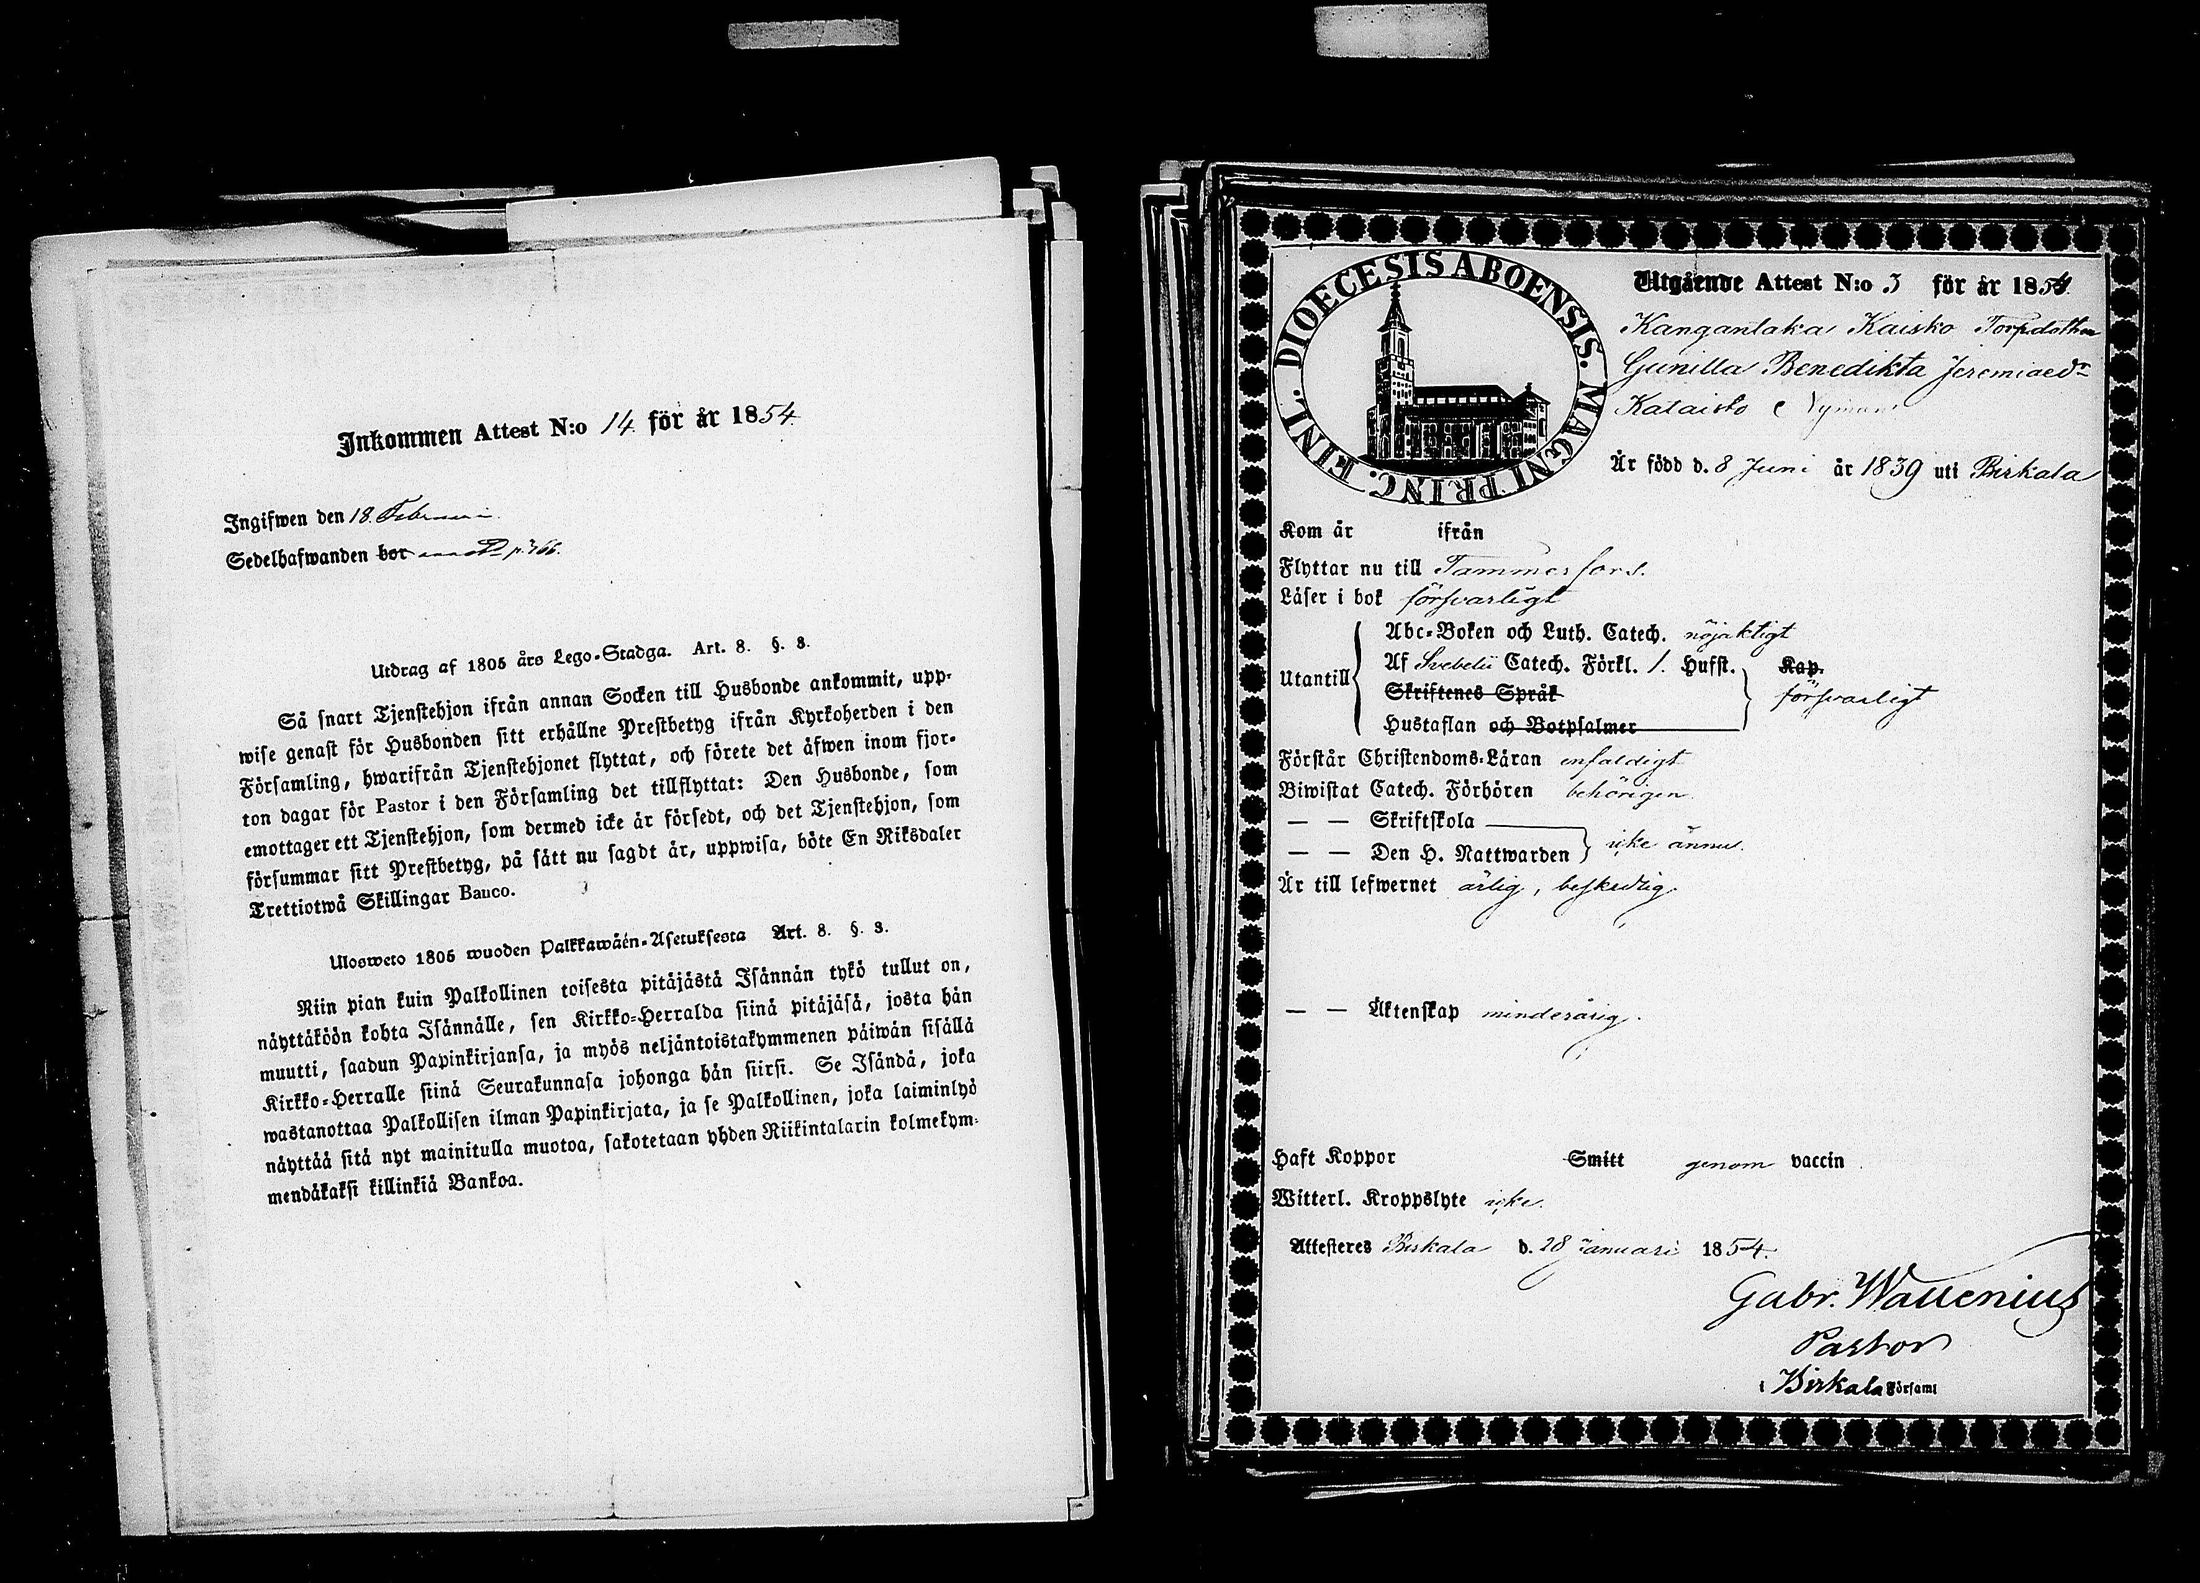 Inkommen Attest N:o 14 för år 1854.
Ingifwen den 18. Februari
Sedelhafwanden bor p. 766.
Utdrag af 1805 års Lego-Stadga. Art. 8. §. 8.
Så snart Tjenstehjon ifrån annan Socken till Husbonde ankommit, upp-
wise genast för Husbonden sitt erhållne Prestbetyg ifrån Kyrkoherden i den
Församling, hwarifrån Tjenstehjonet flyttat, och förete det äfwen inom fjor-
ton dagar för Pastor i den Församling det tillflyttat: Den Husbonde, som
emottager ett Tjenstehjon, som dermed icke är försedt, och det Tjenstehjon, som
försummar sitt Prestbetyg, på sätt nu sagdt är, uppwisa, böte En Riksdaler
Trettiotwå Skillingar Banco.
Ulosweto 1805 wuoden Palkkawäen-Asetuksesta Art. 8. §. 8.
Niin pian kuin Palkollinen toisesta pitäjästä Isännän tykö tullut on,
näyttäköön kohta Isännälle, sen Kirkko-Herralda siinä pitäjäsä, josta hän
muutti, saadun Papinkirjansa, ja myös neljäntoistakymmenen päiwän sisällä
Kirkko-Herralle siinä Seurakunnasa johonga hän siirsi. Se Isändä, joka
wastanottaa Palkollisen ilman Papinkirjata, ja se Palkollinen, joka laiminlyö
näyttää sitä nyt mainitulla muotoa, sakotetaan yhden Riikintalarin kolmekym-
mendäkaksi killinkiä Bankoa.
DIOECESIS ABOENSIS. MAGNI PRINC. FINL.
Utgående Attest N:o 3 för år 1854.
Kangantaka Kaisko Torpdottren
Gunilla Benedikta Jeremiaedr
Kataisto Nyman
Är född d. 8 Juni år 1839 uti Birkala
Kom år ifrån
Flyttar nu till Tammerfors.
Läser i bok försvarligt
Utantill
Abc-Boken och Luth. Catech. nöjaktigt
Af Svebelii Catech. Förkl. 1. Hufst. Kap.
Skriftenes Språk försvarligt
Hustaflan och Botpsalmer
Förstår Christendoms-Läran enfaldigt
Biwistat Catech. Förhören behörigen.
— — Skriftskola
— — Den H. Nattwarden icke ännu.
Är till lefwernet ärlig, beskedlig
— — Äktenskap minderårig.
Haft Koppor Smitt genom vaccin
Witterl. Kroppslyte icke.
Attesteres Birkala d. 28 Januari 1854.
Gabr. Wallenius
Pastor
i Birkala Församl